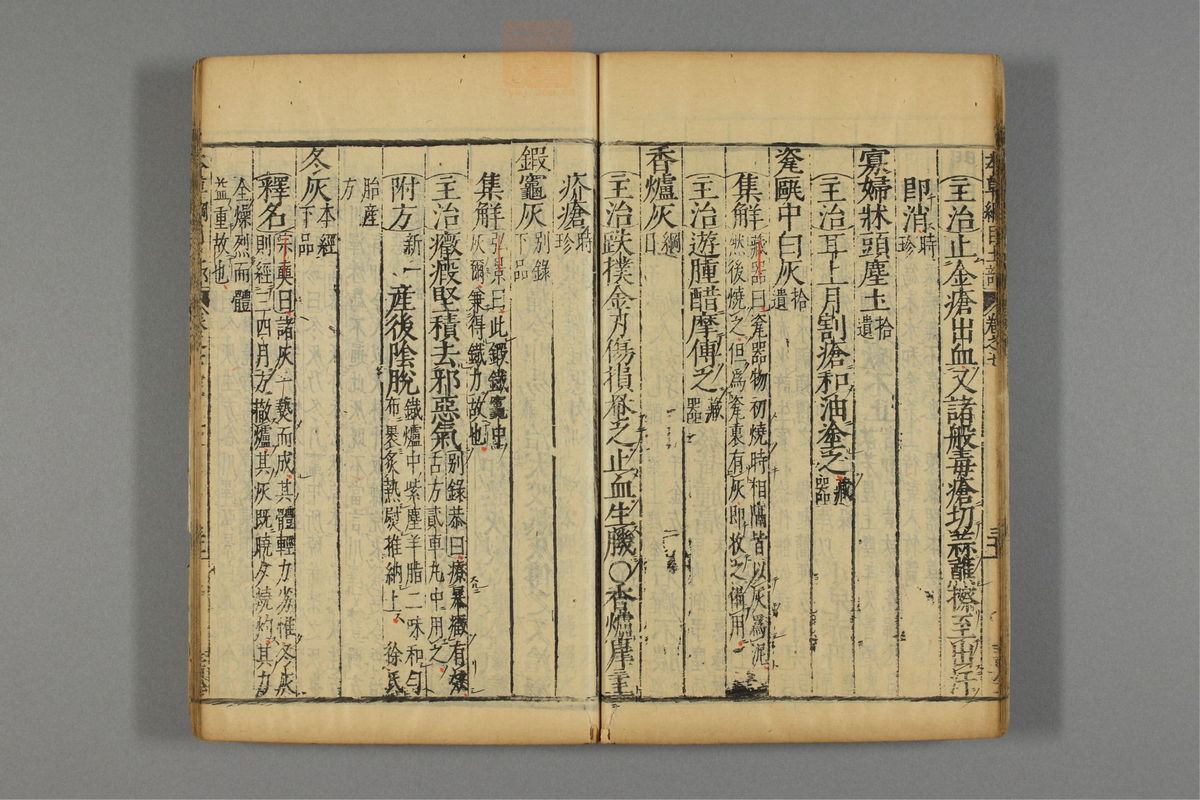 主治止金瘡出血又諸般毒瘡切蒜蘸擦至出汗
即消時珍
寡婦牀頭塵土拾遺
主治耳上月割瘡和油塗之藏器
瓷甌中白灰拾遺
集解藏器曰瓷器物初燒時相隔皆以灰爲泥
然後燒之但爲瓷裏有灰即收之備用
主治遊腫醋摩傅之藏器
香爐灰綱目
主治跌撲金刃傷損罨之止血生肌○香爐岸主
疥瘡時珍
鍛竈灰別錄下品
集解弘景曰此鍛鐵竈中
灰爾兼得鐵力故也
主治癥瘕堅積去邪惡氣別錄恭曰療暴癥有效
古方貳車丸中用之
附方新一產後陰脫鐵爐中紫塵羊脂二味和勻
布裹炙熱熨推納上徐氏
胎產
方
冬灰本經下品
釋名宗奭曰諸灰一爇而成其體輕力劣惟冬灰
則經三四月方撤爐其灰既曉夕燒灼其力
全燥烈而體
益重故也